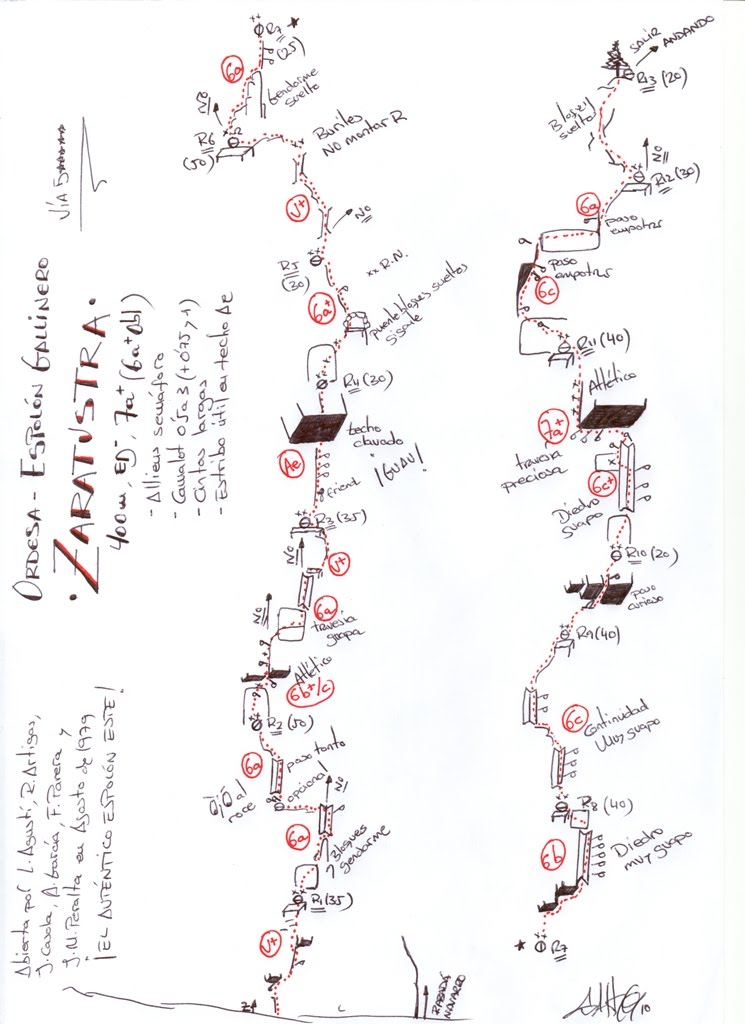 ORDESA - ESPOLÓN GALLINERO
·ZARATUSTRA·
400m, ED-, 7a+ (6a+ obl)
- Aliens semáforo
- Camalot 0'5 a 3 (+0'75 y 1)
- Cintas largas
- Estribo útil en techo Ae
VÍA
Abierta por L. Agustí, R. Artigas,
J. Casola, A. García, F. Parera y
J.M. Peralta en Agosto de 1979
¡EL AUTÉNTICO ESPOLÓN ESTE!
R7
(25)
6a
Gendarme
suelto
NO
R6
(50)
Buriles
NO montar R
V+
NO
R5
(30)
xx R.N.
6a+
puente bloques sueltos
R4 (30)
techo
clavado
¡GUAU!
Ae
friend
R3 (35)
NO
V+
6a
NO
travesía
guapa
Atlético
6b+/c
R2 (50)
6a
paso tonto
opcional
roce
NO
6a
Bloques
gendarme
R1 (35)
V+
RABADÁ
NAVARRO
SALIR
ANDANDO
R13 (20)
Bloques
sueltos
NO
R12 (30)
6a
paso
empotrar
paso
empotrar
6c
R11 (40)
Atlético
7a+
travesía
preciosa
6c+
Diedro
guapo
R10 (20)
paso
curioso
R9 (40)
6c
Continuidad
muy guapo
R8 (40)
6b
Diedro
muy guapo
R7